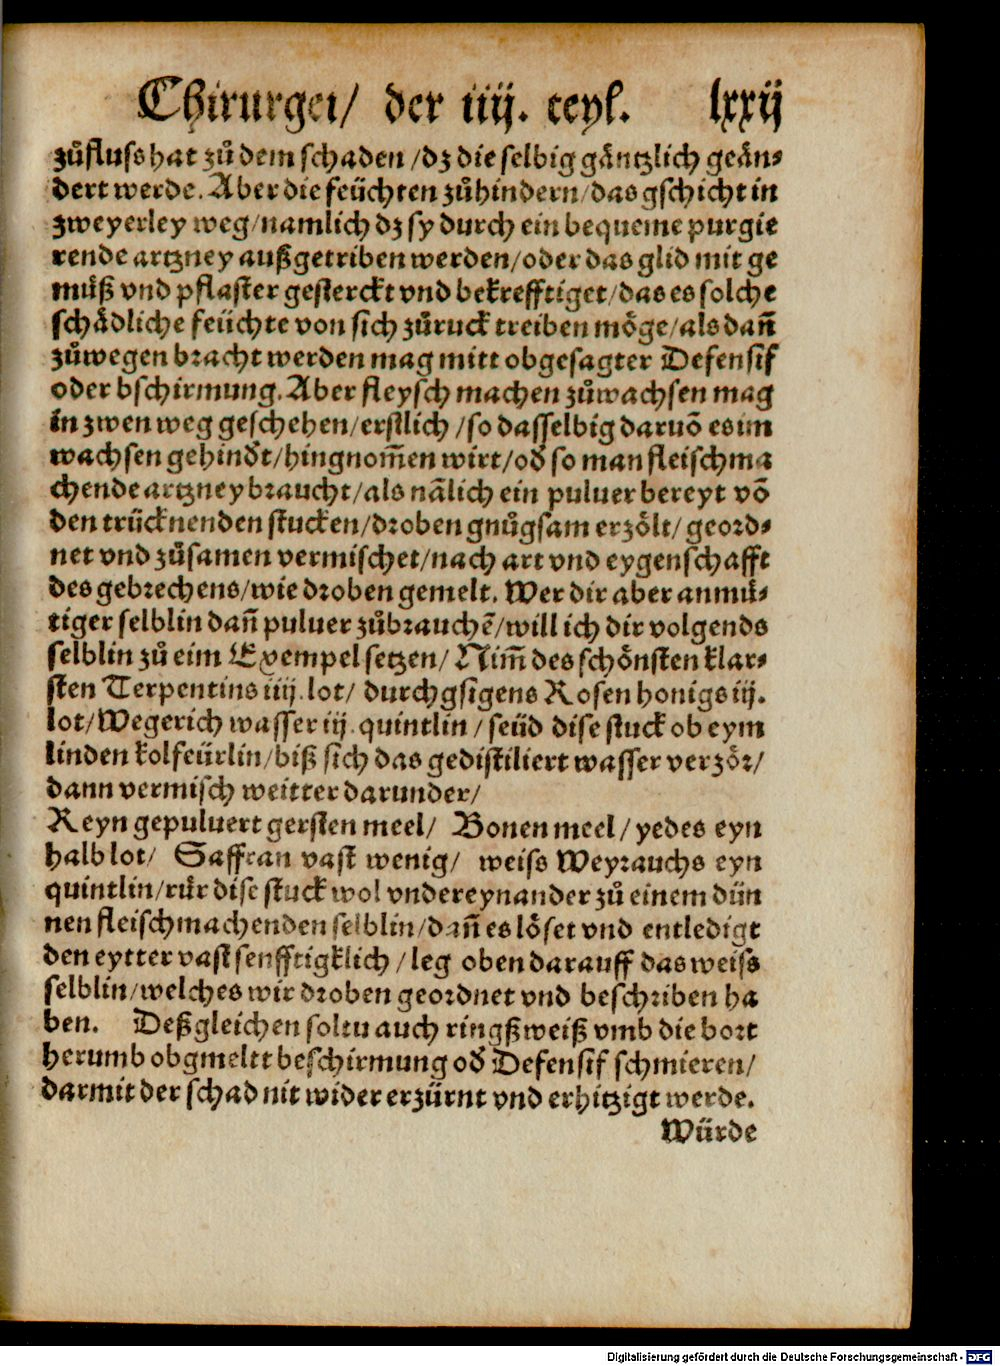 Chirurgei/ der iiij. teyl. lxxij
zůfluss hat zů dem schaden /dz die selbig gäntzlich geän⸗
dert werde. Aber die feüchten zůhindern/das gschicht in
zweyerley weg/namlich dz sy durch ein bequeme purgie
rende artzney außgetriben werden/oder das glid mit ge
müß vnd pflaster gesterckt vnd bekrefftiget/das es solche
schådliche feüchte von sich zůruck treiben möge/als dañ
zůwegen bracht werden mag mitt obgesagter Defensif
oder bschirmung. Aber fleysch machen zůwachsen mag
in zwen weg geschehen/erstlich /so dasselbig daruõ es im
wachsen gehindt/hingnom̃en wirt/od so man fleischma
chende artzney braucht/als nãlich ein puluer bereyt võ
den trücknenden stucken/droben gnůgsam erzölt/ geord⸗
net vnd zůsamen vermischet/nach art vnd eygenschafft
des gebrechens/wie droben gemelt. Wer dir aber anmü⸗
tiger selblin dañ puluer zůbrauchẽ/will ich dir volgends
selblin zů eim Exempel setzen/ Nim̃ des schönsten klar⸗
sten Terpentins iiij. lot/ durchgsigens Rosen honigs iij.
lot/Wegerich wasser iij. quintlin /seüd dise stuck ob eym
linden kolfeürlin/biß sich das gedistiliert wasser verzör/
dann vermisch weitter darunder/
Reyn gepuluert gersten meel/ Bonen meel /yedes eyn
halb lot/ Saffran vast wenig/ weiss Weyrauchs eyn
quintlin/rür dise stuck wol vndereynander zů einem dün
nen fleischmachenden selblin/dañ es löset vnd entledigt
den eytter vast senfftigklich /leg oben darauff das weiss
selblin/welches wir droben geordnet vnd beschriben ha
ben. Deßgleichen soltu auch ringßweiß vmb die bort
herumb obgmeltt beschirmung od Defensif schmieren/
darmit der schad nit wider erzürnt vnd erhitzigt werde.
Würde
Digitalisierung gefördert durch die Deutsche Forschungsgemeinschaft - DFG